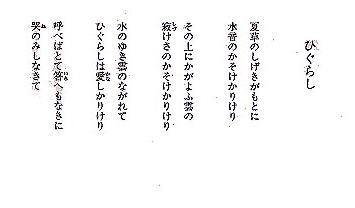 ひぐらし
夏草のしげきがもとに
水音のかそけかりけり
その上にかがよふ雲の
寂けさのかそけかりけり
水のゆき雲のながれて
ひぐらしは愛しかりけり
呼べばとて答へもなきに
哭のみしなきて